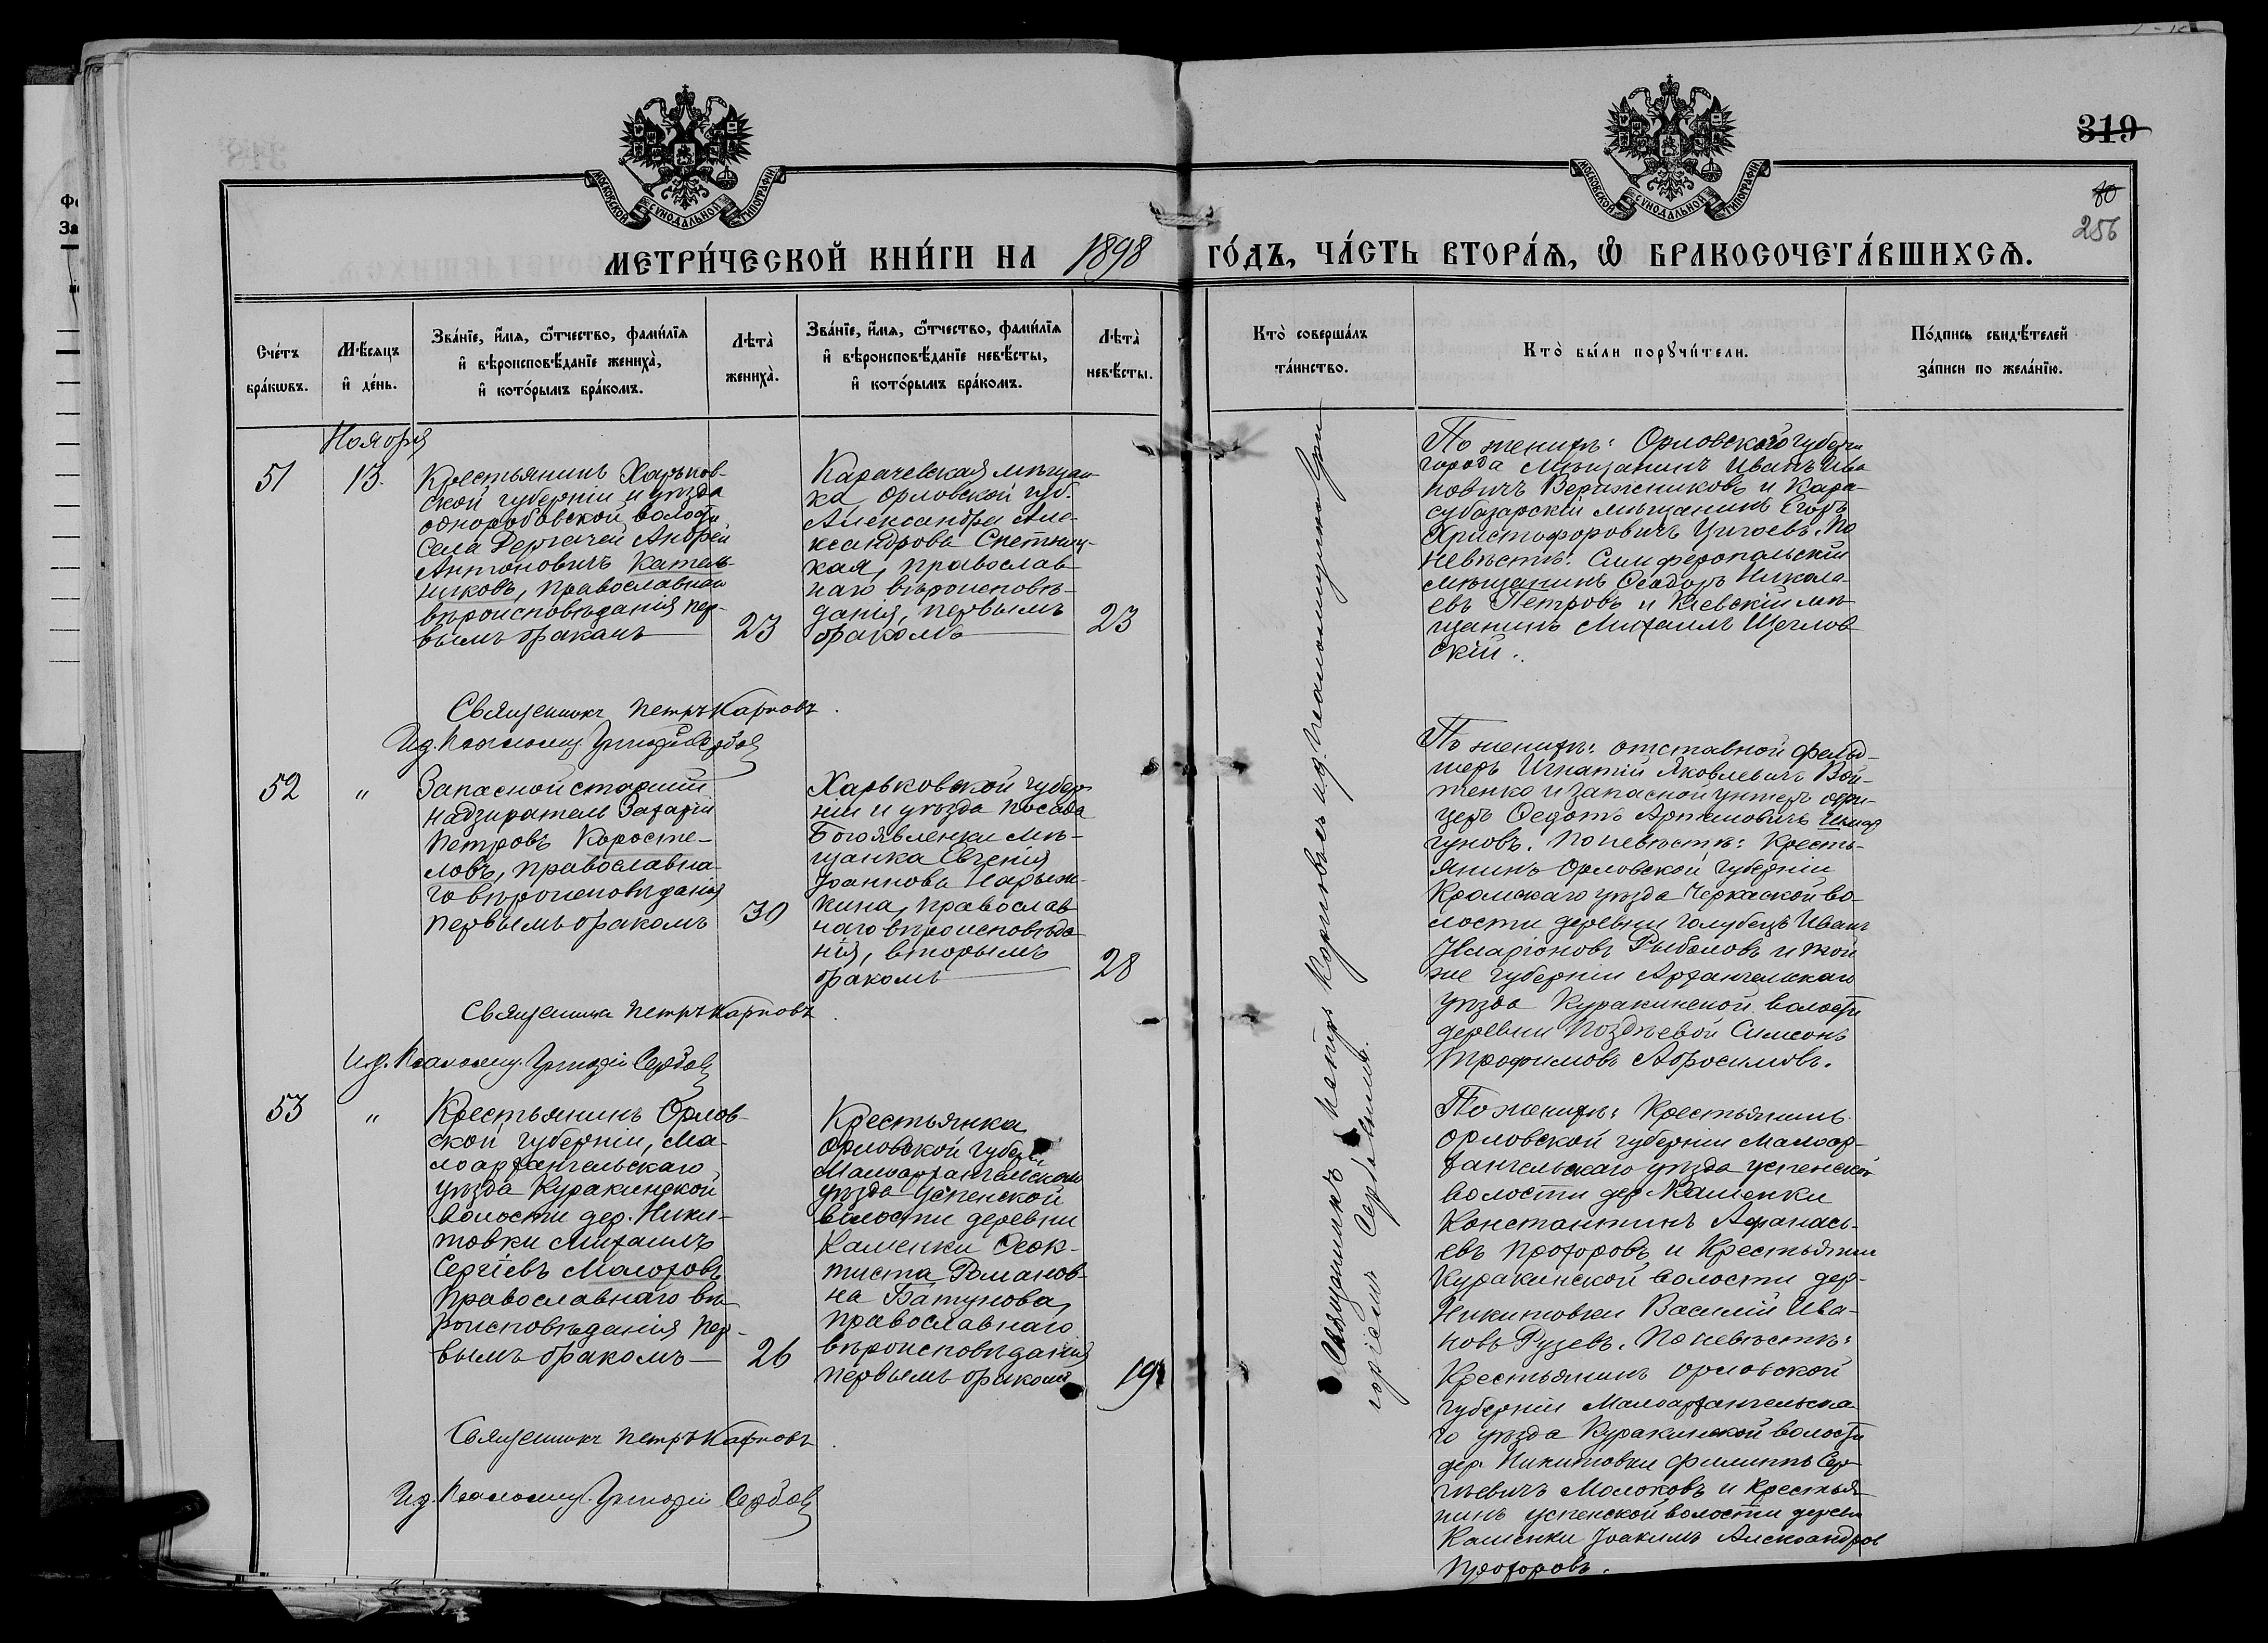 319
70
256
МОСКОВСКОЙ СѴНОДАЛЬНОЙ ТИПОГРАФІИ
МОСКОВСКОЙ СѴНОДАЛЬНОЙ ТИПОГРАФІИ
МЕТРИ́ЧЕСКОЙ КНИ́ГИ НА 1898 ГО́ДЪ, ЧА́СТЬ ВТОРА́Ѧ, Ѽ БРАКОСОЧЕТА́ВШИХСѦ.
Сче́тъ
бра́кѡвъ.
Мѣ́сяцъ
и҆ де́нь.
Зва́нїе, и҆́мя, ѻ҆́тчество, фами́лїя
и҆ вѣроисповѣ́данїе жениха̀,
и҆ кото́рымъ бра́комъ.
Лѣта̀
жениха̀.
Зва́нїе, и҆́мя, ѻ҆́тчество, фами́лїя
и҆ вѣроисповѣ́данїе невѣ́сты,
и҆ кото́рымъ бра́комъ.
Лѣта̀
невѣ́сты.
Кто̀ соверша́лъ
та́инство.
Кто̀ бы́ли порꙋчи́тели.
По́дпись свидѣ́телей
за́писи по жела́нїю.
Ноября
51
13.
Крестьянинъ Харьков-
ской губерніи и уѣзда
однородовской волости,
Села Дергачей Андрей
Антоновичъ Катель-
никовъ, православнаго
вѣроисповѣданія пер-
вымъ бракомъ
23
Карачевская мѣщан-
ка Орловской губ.
Александра Але-
ксандрова Снетниц-
кая, православ-
наго вѣроисповѣ-
данія, первымъ
бракомъ
23
По женихѣ: Орловской губерн
города мѣщанинъ Иванъ Ива
новичъ Верижниковъ и Кара-
субазарскій мѣщанинъ Егоръ
Христофоровичъ Чигоевъ. По
невѣстѣ: Симферопольскій
мѣщанинъ Ѳеодоръ Никола
евъ Петровъ и Кіевскій мѣ
щанинъ Михаилъ Щеглов
скій.
Священникъ Петръ Карповъ.
И.д. Псаломщ. Григорій Сербовъ
52
"
Запасной старшій
надзиратель Захарій
Петровъ Коросте-
ловъ, православна-
го вѣроисповѣданія
первымъ бракомъ
30
Харьковской губер-
ніи и уѣзда посада
Богоявленки мѣ-
щанка Евгенія
Іоаннова Нарыж-
кина, православ-
наго вѣроисповѣда
нія, вторымъ
бракомъ
28
По женихѣ: отставной фельд-
шеръ Игнатій Яковлевичъ Вой-
тенко и запасной унтеръ офи-
церъ Ѳедотъ Артемовичъ Шмар
гуновъ. По невѣстѣ: Кресть-
янинъ Орловской губерніи
Кромскаго уѣзда Черкаской во-
лости деревни Голубецъ Иванъ
Иларіоновъ Рыболовъ и той
же губерніи Архангельскаго
уѣзда Куракинской волости
деревни Позднѣевой Симеонъ
Трофимовъ Абросимовъ.
Священникъ Петръ Карповъ.
И.д. Псаломщ. Григорій Сербовъ
53
"
Крестьянинъ Орлов-
ской губерніи, Ма-
лоархангельскаго
уѣзда Куракинской
волости дер. Ники-
товки Михаилъ
Сергіевъ Молоковъ
православнаго вѣ-
роисповѣданія пер-
вымъ бракомъ
26
Крестьянка
Орловской губер.
Малоархангельскаго
уѣзда Успенской
волости деревни
Каменки Ѳеок-
тиста Романов-
на Батунова,
православнаго
вѣроисповѣданія
первымъ бракомъ
19
По женихѣ: Крестьянинъ
Орловской губерніи Малоар-
хангельскаго уѣзда Успенской
волости дер. Каменки
Константинъ Афанась-
евъ Прохоровъ и Крестьянин
Куракинской волости дер-
Никитовки Василій Ива-
новъ Гузевъ. По невѣстѣ:
Крестьянинъ Орловской
губерніи Малоархангельска-
го уѣзда Куракинской волости
дер. Никитовки Филиппъ Сер-
гѣевичъ Молоковъ и Крестья
нинъ Успенской волости дерев
Каменки Іоакимъ Александров
Прохоровъ.
Священникъ Петръ Карповъ.
И.д. Псаломщ. Григорій Сербовъ
Священникъ Петръ Карповъ съ и.д. псаломщика Гри-
горіемъ Сербовымъ.